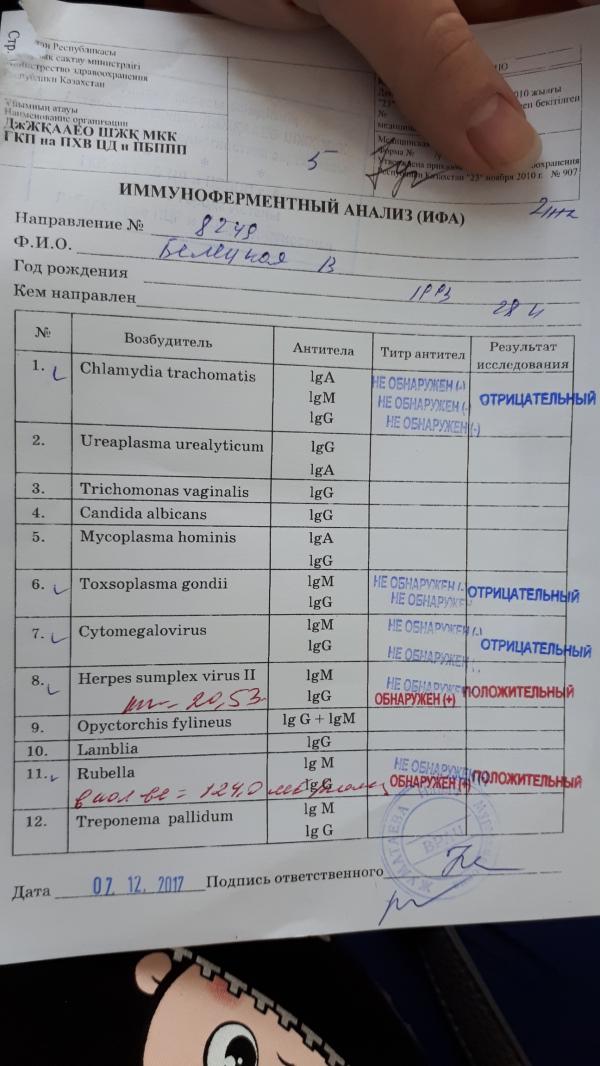 Стр.
Республикасы
сақтау министрлігі
здравоохранения
Казахстан
Ұйымның атауы
Наименование организации
ДжЖҚААЕО ШЖҚ МКК
ГКП на ПХВ ЦД и ПБППП
2010 жылғы
"23" бекітілген
№
Медицинская
форма №
Утверждена
Республики Казахстан "23" ноября 2010 г. № 907
5
ИММУНОФЕРМЕНТНЫЙ АНАЛИЗ (ИФА)
Направление № 8249
Ф.И.О. Белецкая В
Год рождения 1993 28
Кем направлен
№ Возбудитель Антитела Титр антител Результат исследования
1. Chlamydia trachomatis lgA НЕ ОБНАРУЖЕН (-)
lgM НЕ ОБНАРУЖЕН (-) ОТРИЦАТЕЛЬНЫЙ
lgG НЕ ОБНАРУЖЕН (-)
2. Ureaplasma urealyticum lgG
lgA
3. Trichomonas vaginalis lgG
4. Candida albicans lgG
5. Mycoplasma hominis lgA
lgG
6. Toxsoplasma gondii lgM НЕ ОБНАРУЖЕН (-) ОТРИЦАТЕЛЬНЫЙ
lgG НЕ ОБНАРУЖЕН
7. Cytomegalovirus lgM НЕ ОБНАРУЖЕН (-)
lgG НЕ ОБНАРУЖЕН ОТРИЦАТЕЛЬНЫЙ
8. Herpes sumplex virus II lgM НЕ ОБНАРУЖЕН ПОЛОЖИТЕЛЬНЫЙ
20,53 lgG ОБНАРУЖЕН (+)
9. Opyctorchis fylineus lg G + lgM
10. Lamblia lgG
11. Rubella lg M НЕ ОБНАРУЖЕН ПОЛОЖИТЕЛЬНЫЙ
в кол ве = 124,0 lg G ОБНАРУЖЕН (+)
12. Treponema pallidum lg M
lg G
ЖУМАГАЕВА
ВРАЧ
Дата 07. 12. 2017 Подпись ответственного